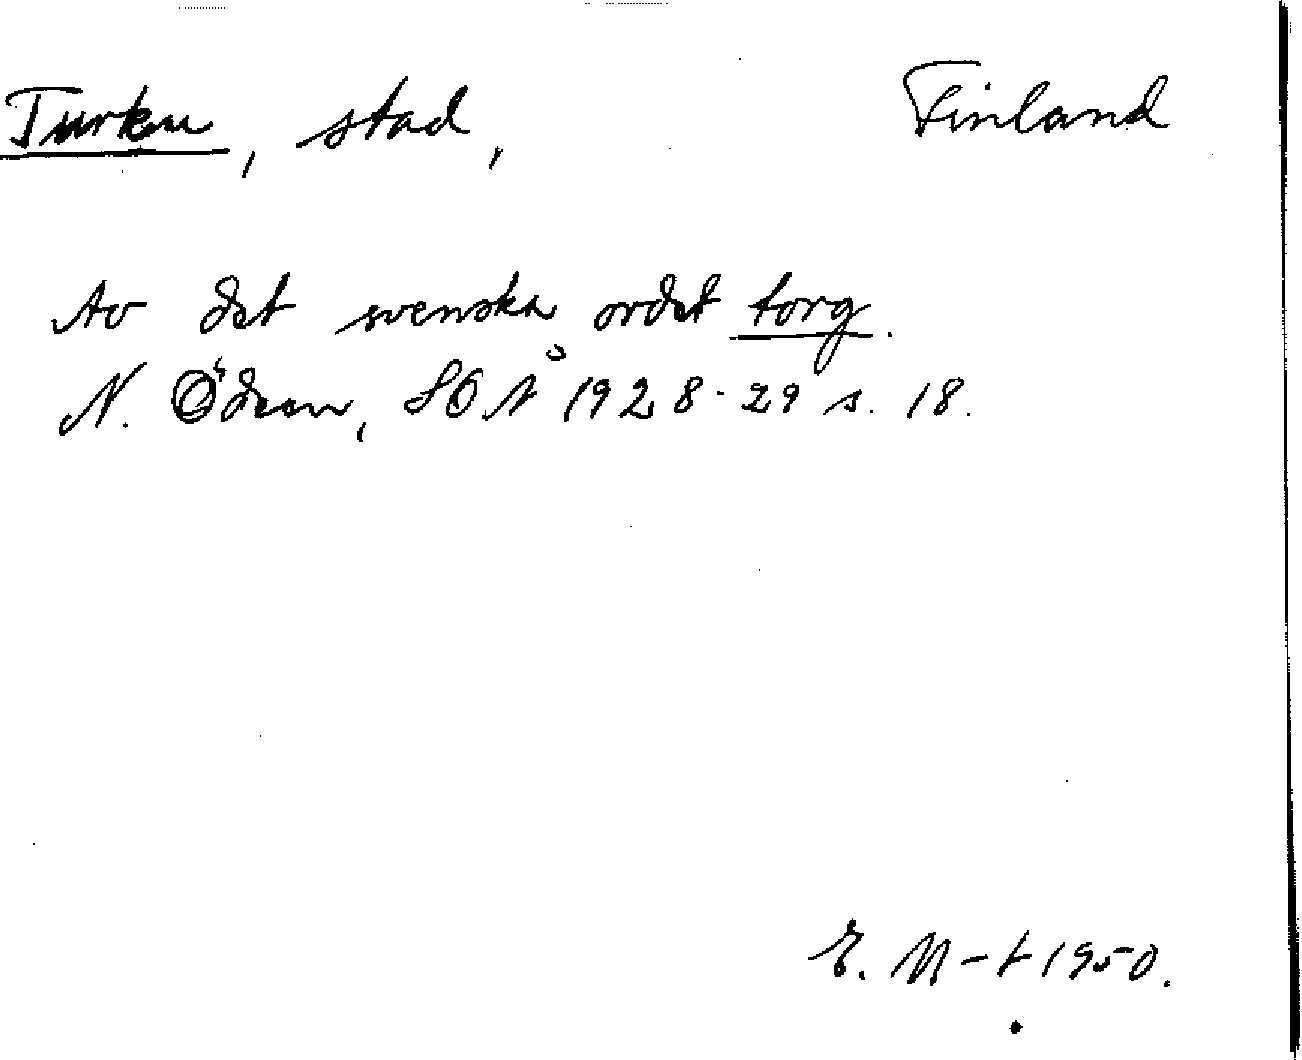 Turku, stad, Finland
Av det svenska ordet torg.
N. Ödeen, SOÅ 1928-29 s. 18.
E. M-t 1950.